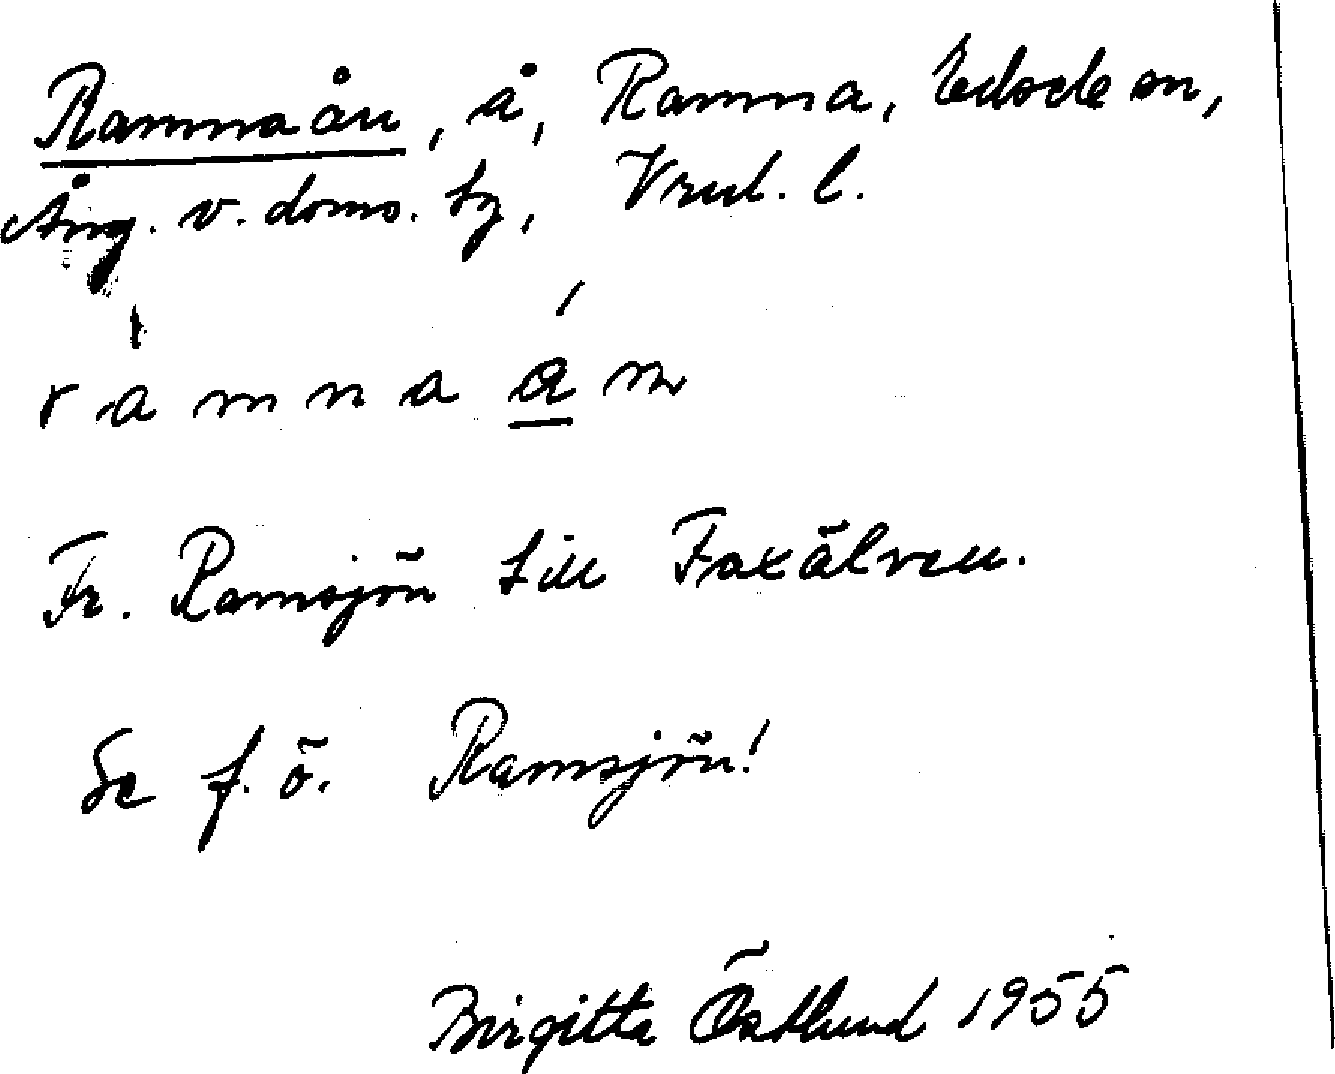 Ramnaån, å, Ramna, Edsele sn,
Ång. v. doms. tg, Vrml. l.
ramnaån
Fr. Ramsjön till Faxälven.
Se f. ö. Ramsjön!
Birgitta Östlund 1955